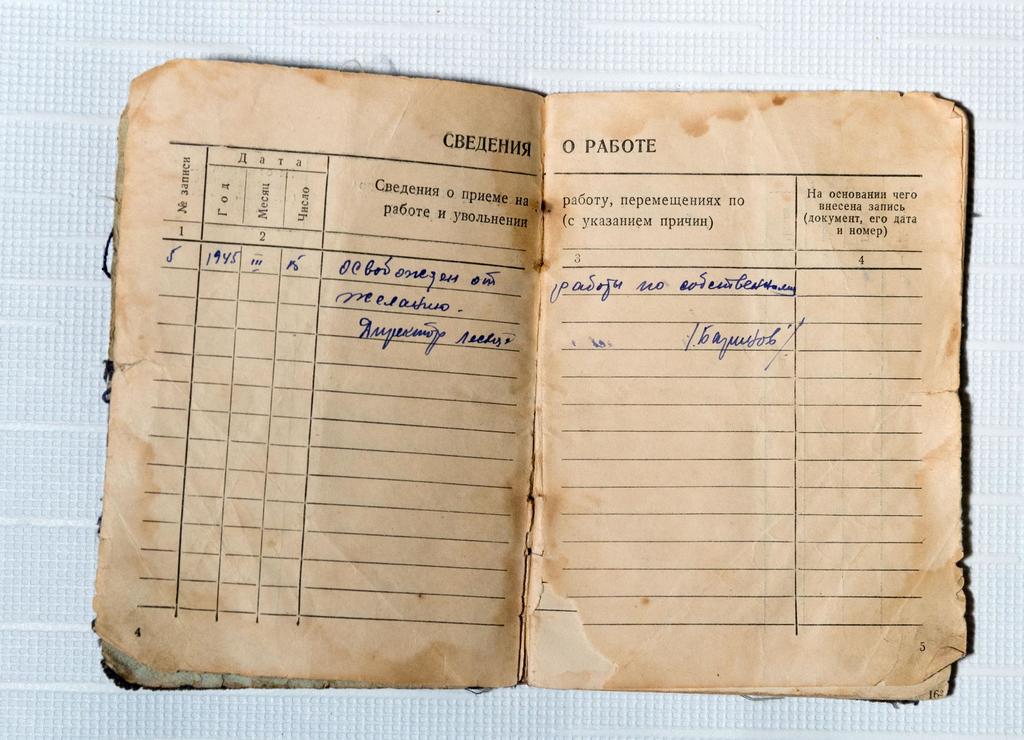 СВЕДЕНИЯ О РАБОТЕ
№ записи
Дата
Год
Месяц
Число
Сведения о приеме на работу, перемещениях по
работе и увольнении (с указанием причин)
На основании чего
внесена запись
(документ, его дата
и номер)
1 2 3 4
5 1945 III 15 освобожден от работы по собственному
желанию.
Директор /Баринов/
4
5
16*